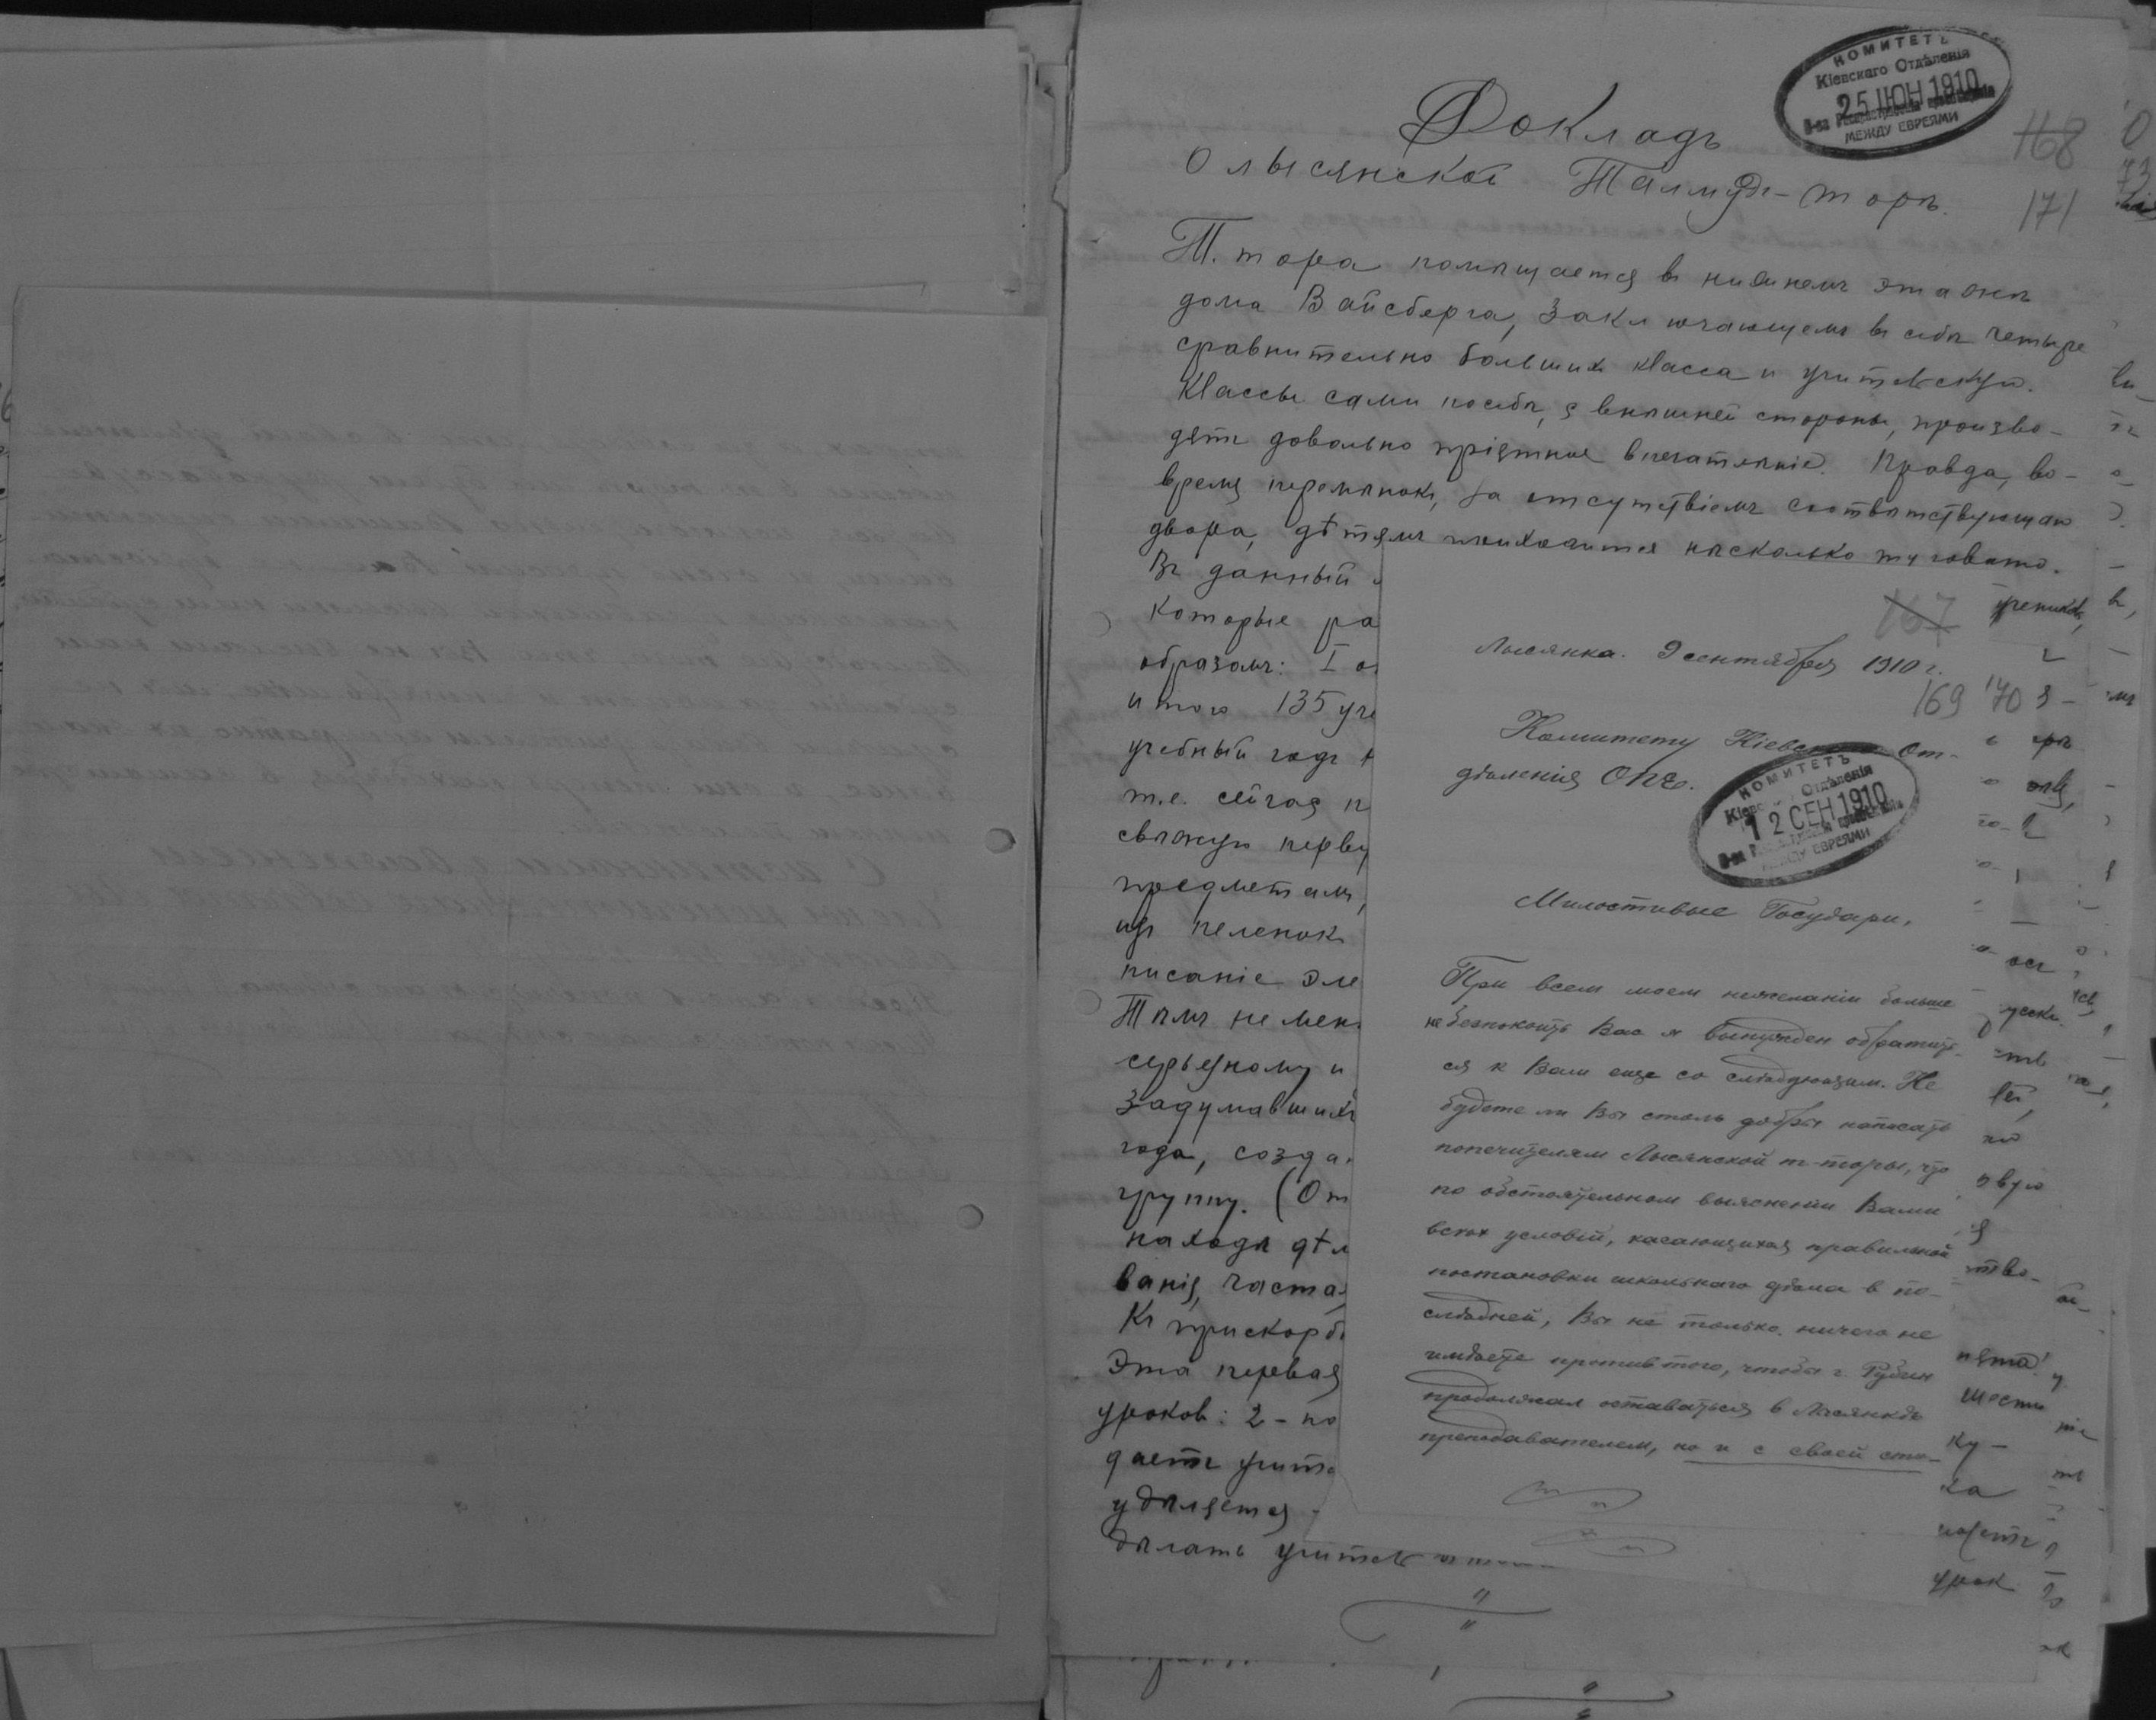 КОМИТЕТЪ
Кіевскаго Отдѣленія
25 ІЮН 1910
МЕЖДУ ЕВРЕЯМИ
Докладъ
168
о Лысянской Талмудъ-торѣ.
171
Т. тора помѣщается въ нижнемъ этажѣ
дома Вайсберга, заключающемъ въ себѣ четыре
сравнительно большихъ класса и учительскую.
Классы сами по себѣ, съ внѣшней стороны, произво-
дятъ довольно пріятное впечатлѣніе. Правда, во-
время перемѣнокъ, за отсутствіемъ соотвѣтствующаго
двора, дѣтямъ приходится нѣсколько туговато.
Въ данный
которые ра
образомъ: I о
итого 135 уче
учебный годъ
т.е. сейчас п
свѣжую перву
предметамъ,
изъ пеленокъ
писаніе эле
Тѣмъ не мен
серьезному и
задумавшихъ
года, созда
группу. (От
находя дѣл
ванія, часта
Къ прискорб
Эта первая
уроковъ: 2 - по
даетъ учите
удѣляется
дѣлать учител
167
учениковъ,
Лысянка. 9 сентября 1910 г.
169 170
Комитету Кіевскаго От-
дѣленія ОПЕ.
КОМИТЕТЪ
Отдѣленія
12 СЕН 1910
ЕВРЕЯМИ
Милостивые Государи,
При всем моем нежеланіи больше
не безпокоить Вас я вынужден обратить-
ся к Вам еще со слѣдующим. Не
будете ли Вы столь добры написать
попечителям Лысянской т-торы, что
по обстоятельном выясненіи Вами
всѣх условій, касающихся правильной
постановки школьнаго дѣла в по-
слѣдней, Вы не только ничего не
имѣете против того, чтобы г. Рубин
продолжал оставаться в Лысянкѣ
преподавателем, но и с своей сто-
урок